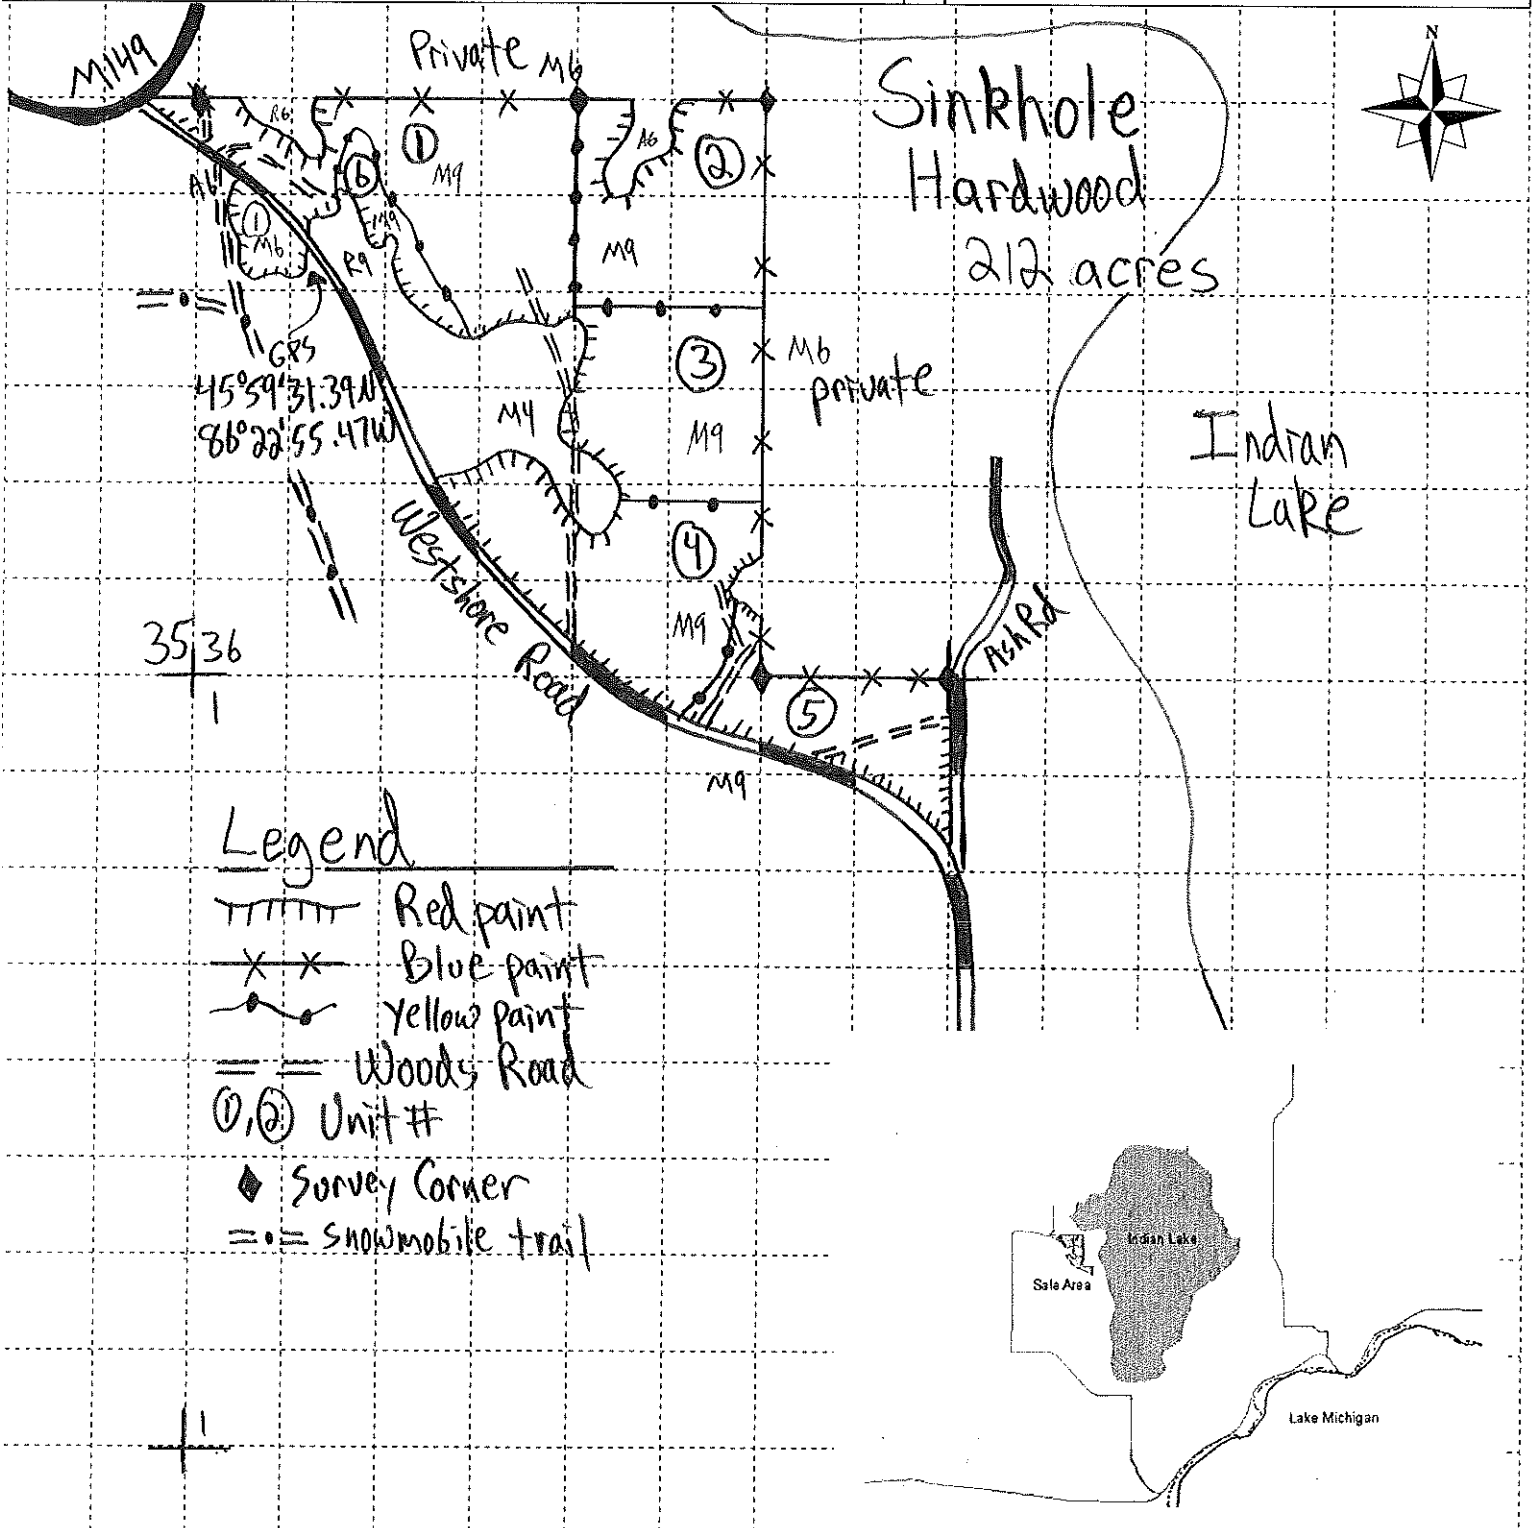 M149
Private M6
N
Sinkhole
Hardwood
212 acres
R6
1
M9
6
A6
2
A6
1
M6
R9
M9
GPS
45°59'31.39N
86°22'55.47W
M4
3
M9
M6
private
Indian
Lake
4
M9
Westshore Road
Ash Rd
35 36
1
5
M9
Legend
Red paint
Blue paint
Yellow paint
Woods Road
1, 2 Unit #
Survey Corner
Snowmobile trail
Indian Lake
Sale Area
Lake Michigan
1